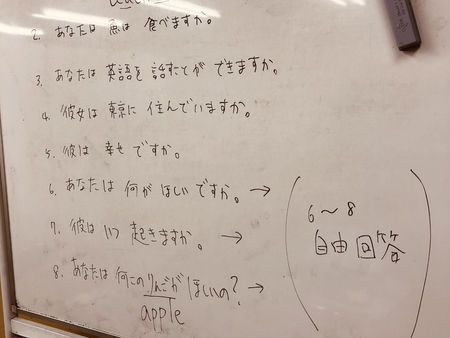 2. あなたは 魚は 食べますか。
3. あなたは 英語を 話すことが できますか。
4. 彼女は 東京に 住んでいますか。
5. 彼は 幸せですか。
6. あなたは 何が ほしいですか。→
7. 彼は いつ 起きますか。→
8. あなたは 何この りんごが ほしいの?→
apple
6〜8
自由回答